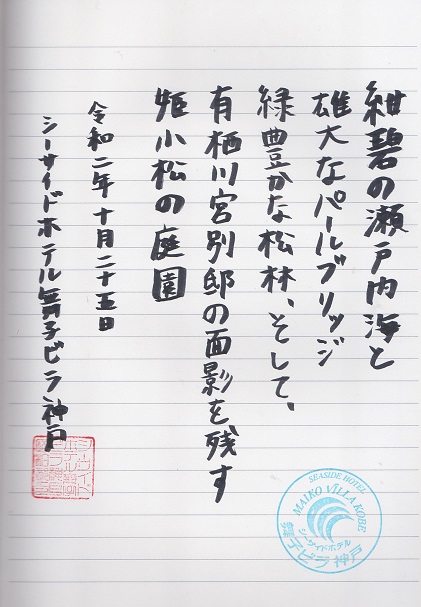 紺碧の瀬戸内海と
雄大なパールブリッジ
緑豊かな松林、そして、
有栖川宮別邸の面影を残す
姫小松の庭園
令和二年十月二十五日
シーサイドホテル舞子ビラ神戸
SEASIDE HOTEL
MAIKO VILLA KOBE
シーサイドホテル
舞子ビラ神戸